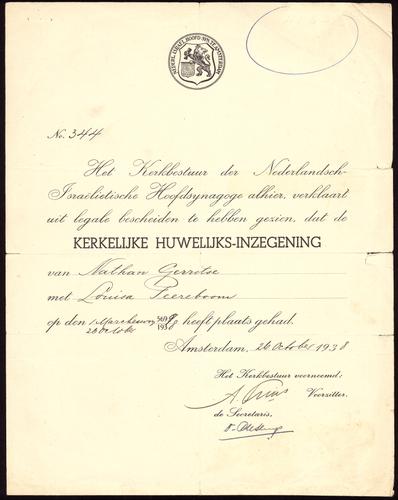 NEDERL. ISRAEL. HOOFD-SYN. TE AMSTERDAM
No. 344
Het Kerkbestuur der Nederlandsch-
Israëlietische Hoofdsynagoge alhier, verklaart
uit legale bescheiden te hebben gezien, dat de
KERKELIJKE HUWELIJKS-INZEGENING
van Nathan Gerritse
met Louisa Peereboom
op den 1 Marcheswan 5699
26 October 1938 heeft plaats gehad.
Amsterdam, 26 October 1938
Het Kerkbestuur voornoemd,
Voorzitter.
de Secretaris.